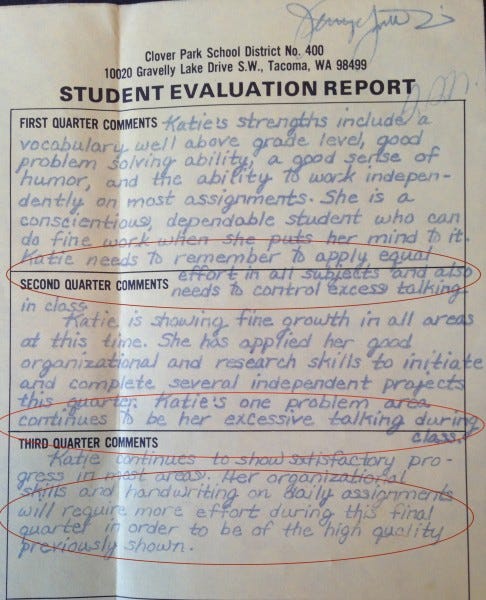 Clover Park School District No. 400
10020 Gravelly Lake Drive S.W., Tacoma, WA 98499
STUDENT EVALUATION REPORT
FIRST QUARTER COMMENTS Katie's strengths include a
vocabulary well above grade level, good
problem solving ability, a good sense of
humor, and the ability to work indepen-
dently on most assignments. She is a
conscientious, dependable student who can
do fine work when she puts her mind to it.
Katie needs to remember to apply equal
effort in all subjects and also
SECOND QUARTER COMMENTS needs to control excess talking
in class.
Katie is showing fine growth in all areas
at this time. She has applied her good
organizational and research skills to initiate
and complete several independent projects
this quarter. Katie's one problem area
continues to be her excessive talking during
class.
THIRD QUARTER COMMENTS
Katie continues to show satisfactory pro-
gress in most areas. Her organizational
skills and handwriting on daily assignments
will require more effort during this final
quarter in order to be of the high quality
previously shown.